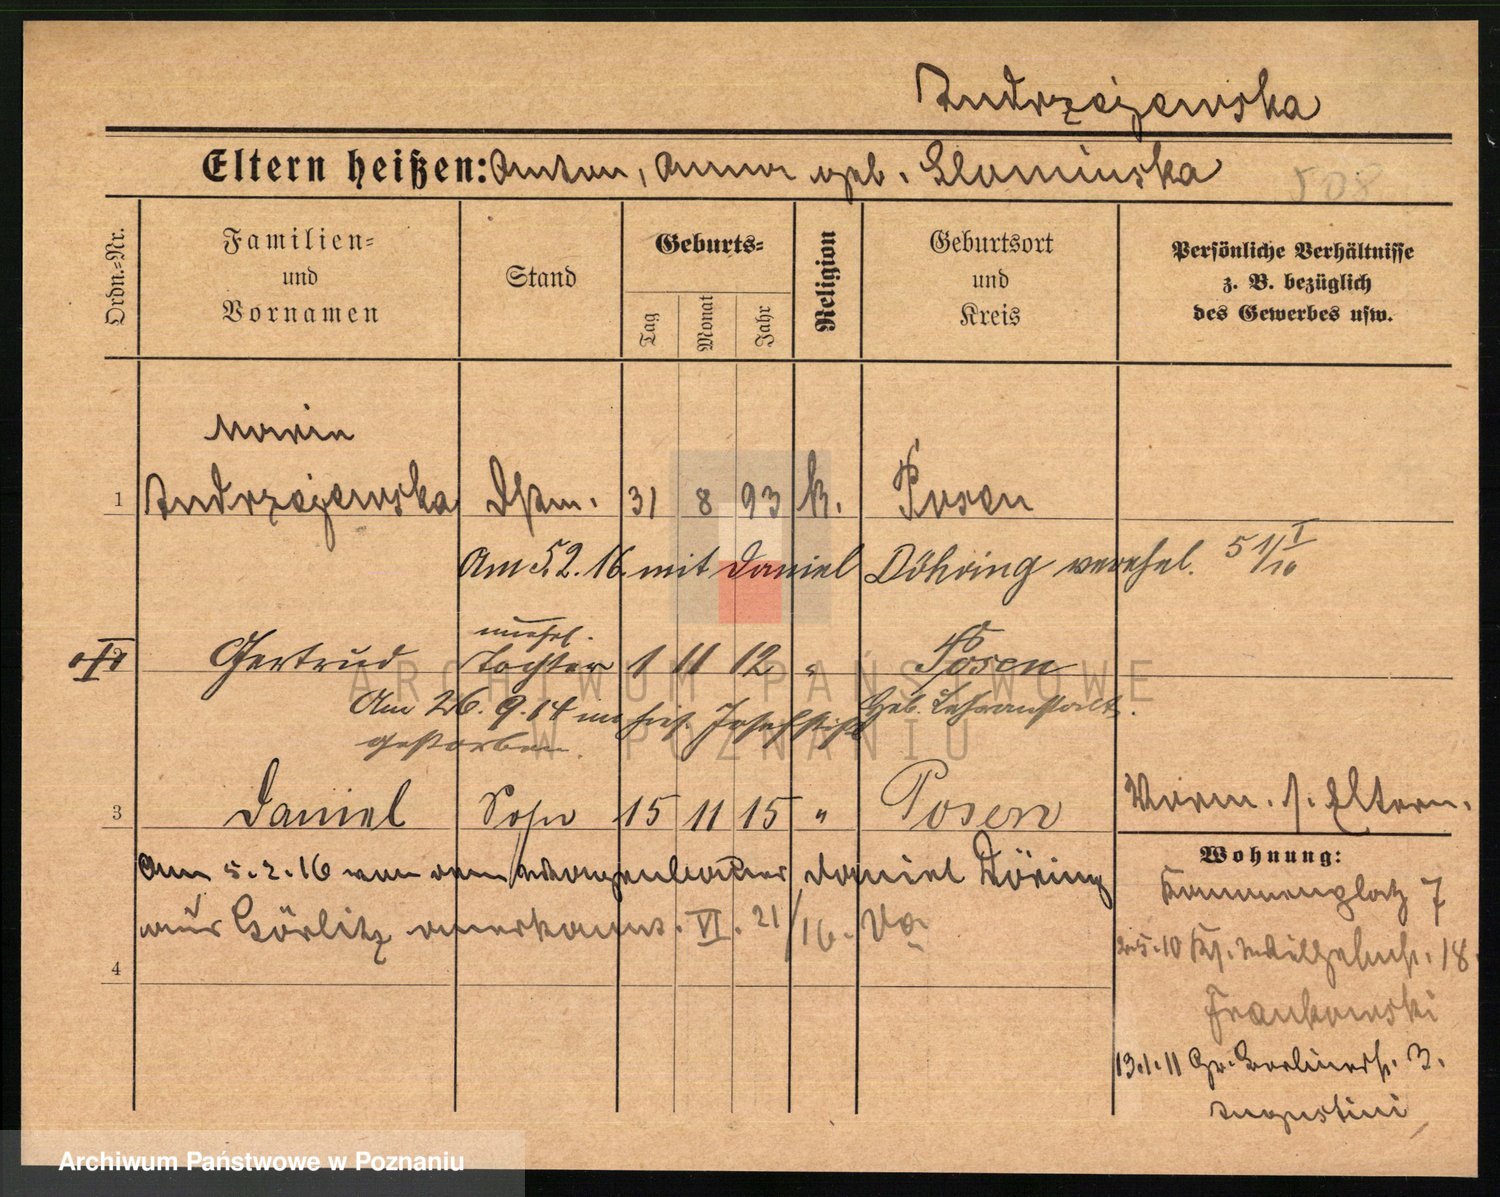 Andrzejewska
Eltern heißen: Anton, Anna geb. Slominska
508
Ordn.-Nr.
Familien- und Vornamen
Stand
Geburts-
Tag
Monat
Jahr
Religion
Geburtsort und Kreis
Persönliche Verhältnisse z. B. bezüglich des Gewerbes usw.
Maria
1 Andrzejewska Dstm. 31 8 93 K. Posen
Am 5.2.16 mit Daniel Döhring verehel.
unehel.
2 Gertrud Tochter 1 11 12 " Posen
Am 26.9.14 im Josefstift Geb. Lehranstalt.
gestorben.
3 Daniel Sohn 15 11 15 " Posen
Vorm. s. Eltern.
Am 5.2.16 von dem Daniel Döring
aus Görlitz anerkannt. VI. 21/16.
4
Wohnung:
7
25.10 18.
Frankowski
13.1.11 Gr. Berlinerst. 3.
Augustini
ARCHIWUM PAŃSTWOWE
W POZNANIU
Archiwum Państwowe w Poznaniu